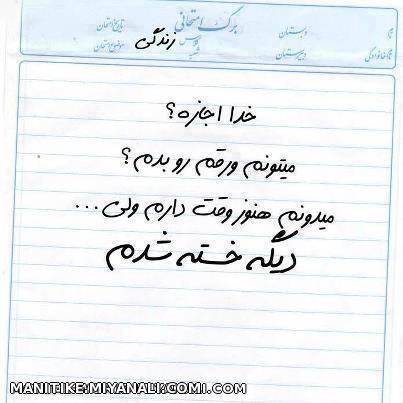 برگ امتحانی
نام
دبستان
تاریخ امتحان
نام خانوادگی
دبیرستان
درس
شعبه
زندگی
موضوع امتحان
خدا اجازه؟
میتونم ورقم رو بدم؟
میدونم هنوز وقت دارم ولی...
دیگه خسته شدم
MANITIKE.MIYANALI.COMI.COM